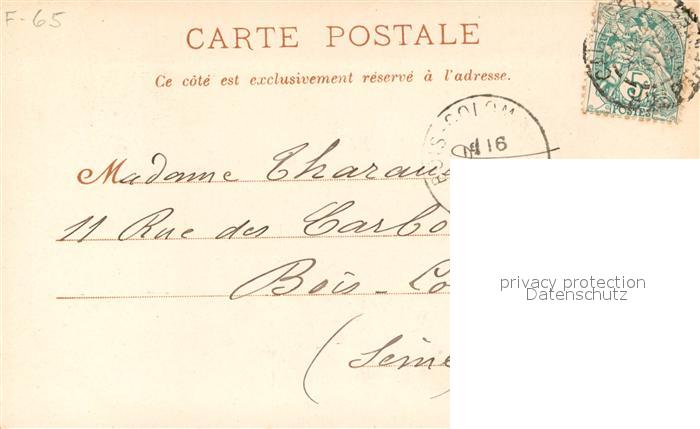 F-65
CARTE POSTALE
Ce côté est exclusivement réservé à l'adresse.
5
POSTES
BOIS-COLOM
16
Madame
11 Rue des Carbo
Bois-Co
(Seine
privacy protection
Datenschutz